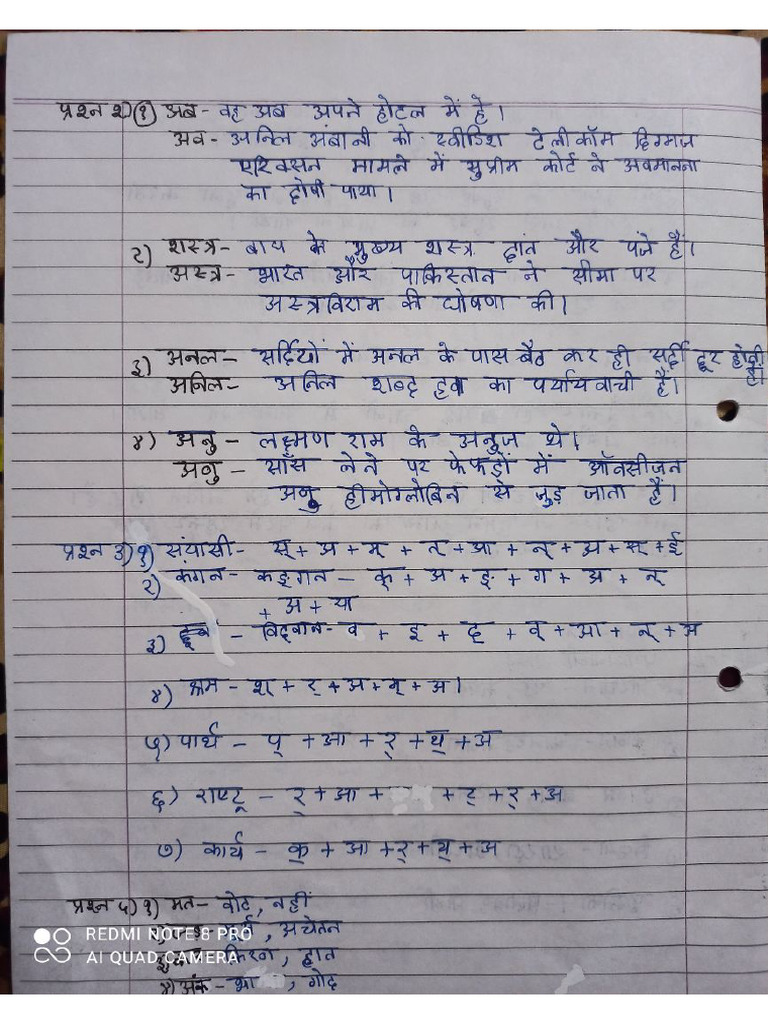 प्रश्न २) १) अब - वह अब अपने होटल में है।
अव - अनिल अंबानी को स्वीडिश टेलीकॉम दिग्गज
एरिक्सन मामले में सुप्रीम कोर्ट ने अवमानना
का दोषी पाया।
२) शस्त्र - बाघ के मुख्य शस्त्र दांत और पंजे हैं।
अस्त्र - भारत और पाकिस्तान ने सीमा पर
अस्त्रविराम की घोषणा की।
३) अनल - सर्दियों में अनल के पास बैठ कर ही सर्दी दूर होती
है।
अनिल - अनिल शब्द हवा का पर्यायवाची है।
४) अनु - लक्ष्मण राम के अनुज थे।
अणु - साँस लेने पर फेफड़ों में ऑक्सीजन
अणु हीमोग्लोबिन से जुड़ जाता है।
प्रश्न ३) १) संयासी - स् + अ + म् + त् + आ + न् + अ + स् + ई
२) कंगन - कङ्गन - क् + अ + ङ् + ग + अ + न्
+ अ + या
३) - विद्वान - व + इ + द् + व् + आ + न् + अ
४) श्रम - श् + र् + अ + म् + अ।
५) पार्थ - प् + आ + र् + थ् + अ
६) राष्ट्र - र् + आ + + ट् + र् + अ
७) कार्य - क् + आ + र् + य् + अ
प्रश्न ५) १) मत - वोट, नहीं
, अचेतन
किरण, हाथ
४) अंक - , गोद
REDMI NOTE 8 PRO
AI QUAD CAMERA